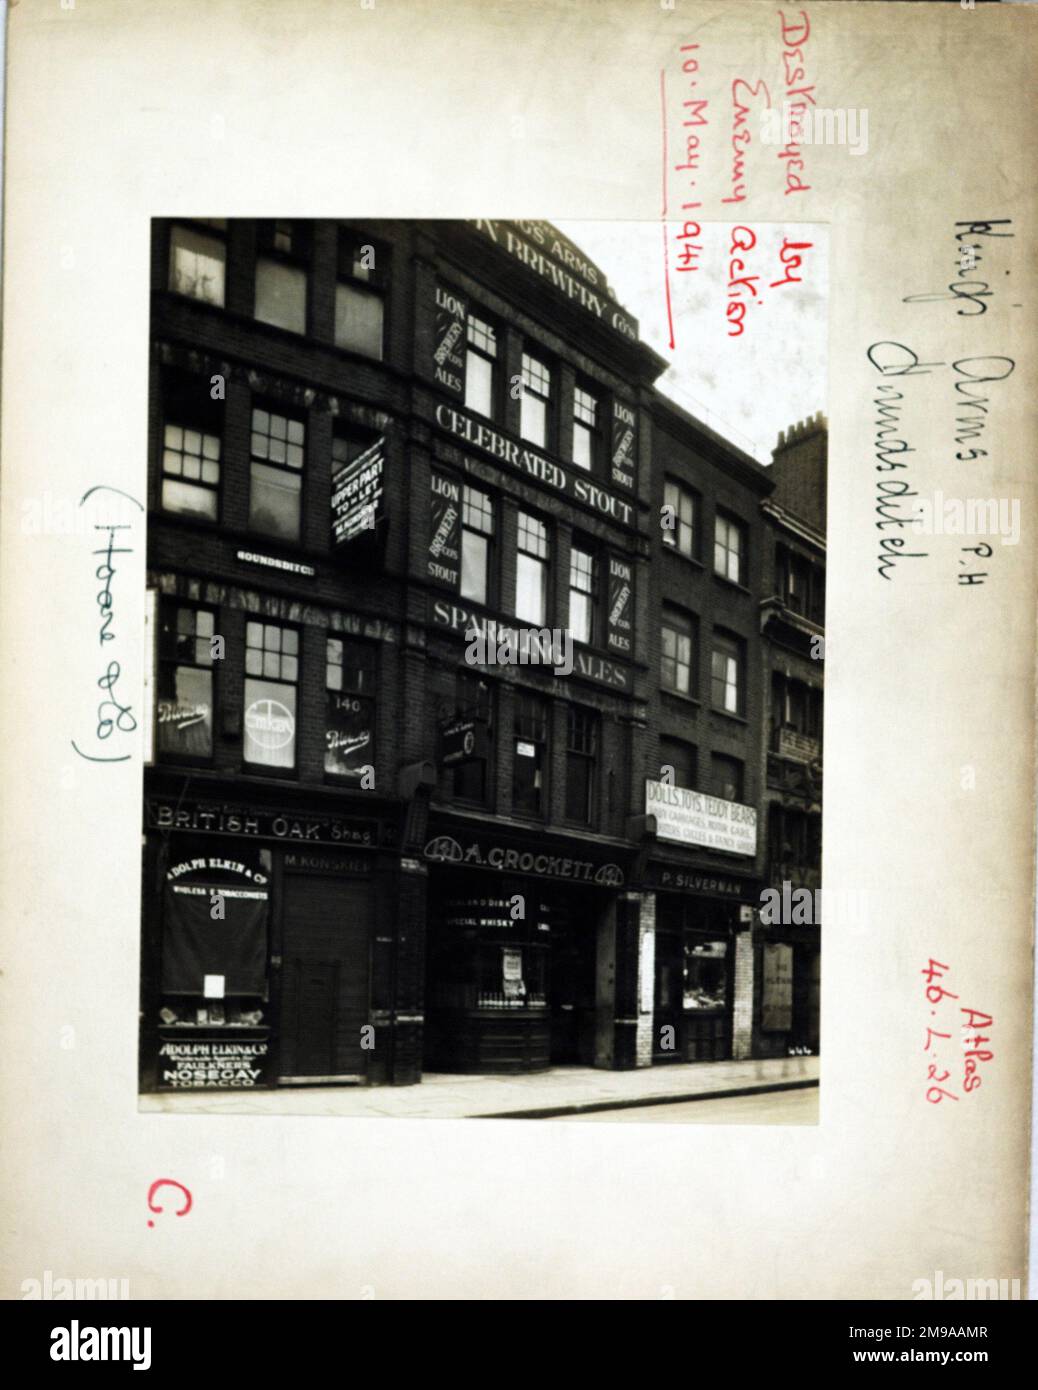 Destroyed by
Enemy Action
10. May. 1941
King's Arms P.H
Hundsditch
(Hoare & Co)
Atlas
46. L. 26
C.
GS' ARMS
BREWERY CO'S
LION
BREWERY
CO'S
ALES
LION
BREWERY
CO'S
STOUT
CELEBRATED STOUT
LION
BREWERY
CO'S
STOUT
LION
BREWERY
CO'S
ALES
SPARKLING ALES
UPPER PART
TO LET
HOUNDSDITCH
140
BRITISH OAK Shag
M. KONSKIER
ADOLPH ELKIN & Co
TOBACCONISTS
ADOLPH ELKIN & Co
Wholesale Agents for
FAULKNERS
NOSEGAY
TOBACCO
141 A. CROCKETT. 141
SPECIAL WHISKY
DOLLS, TOYS, TEDDY BEARS
BABY CARRIAGES, MOTOR CARS,
SCOOTERS, CYCLES & FANCY GOODS
P. SILVERMAN
444
alamy
Image ID: 2M9AAMR
www.alamy.com